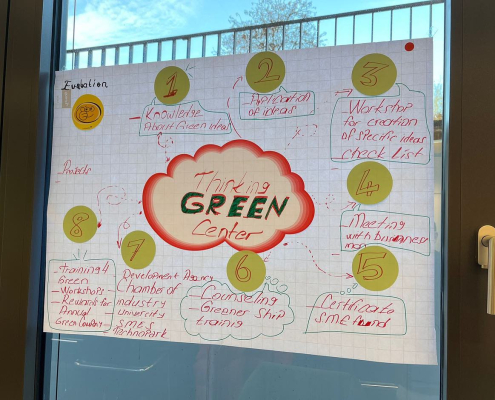 Evaluation
1
Knowledge
About Green ideas
2
Application
of ideas
3
Workshop
for creation
of specific ideas
check list
4
Meeting
with
5
Certificate
SME found
6
Counseling
Greener Ship
trainig
7
Development Agency
Chamber of
industry
univercity
SMES
Technopark
8
training 4
Green
- Workshops
- Rewards for
Annual
Green Company
Thinking
GREEN
Center